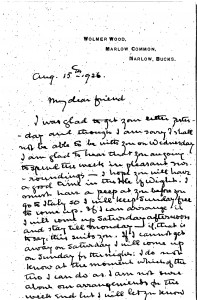 WOLMER WOOD,
MARLOW COMMON,
MARLOW, BUCKS.
Aug. 15th 1926.
My dear friend
I was glad to get your letter yester-
-day and though I am sorry I shall
not be able to be with you on Wednesday
I am glad to hear that you are going
to spend the week in pleasant sur-
-roundings — I hope you will have
a good time in the I. of Wight. I
must have a peep at you before you
go to Italy so I will keep Sunday free
to come up. If I can arrange it
I will come up Saturday afternoon
and stay till Monday — if that is
to say, this suits you. If I cannot get
away on Saturday I will come up
on Sunday for the night. I do not
know at the moment which of the
two I can do as I am not sure
about our arrangements for the
week end but I will let you know